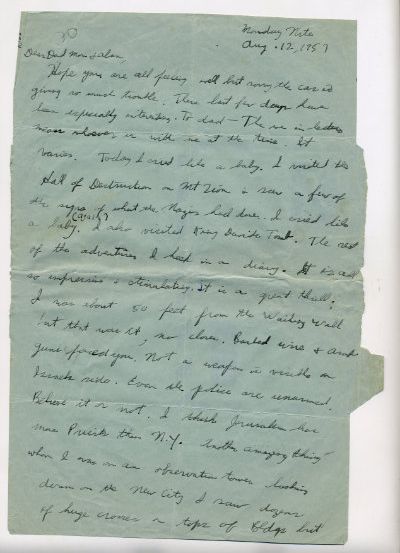 Monday Nite
Aug. 12, 1957
Dear Dad Mom & Alan,
Hope you are all feeling well but sorry the car is
giving so much trouble. These last few days have
been especially interesting. To dad — The we in letters
means whoever is with me at the time. It
varies. Today I cried like a baby. I visited the
Hall of Destruction on Mt Zion & saw a few of
the signs of what the Nazis had done. I cried like
a baby. (again) I also visited King Davids Tomb. The rest
of the adventures I keep in a diary. It is all
so impressive & stimulating. It is a great thrill.
I was about 50 feet from the Wailing Wall
but that was it, no closer. Barbed wire & Arab
guns faced you. Not a weapon is visible on
Israels side. Even the police are unarmed.
Believe it or not. I think Jerusalem has
more Priests than N.Y. Another amazing thing
when I was on an observation tower looking
down on the New City I saw dozens
of huge crosses on tops of bldgs but